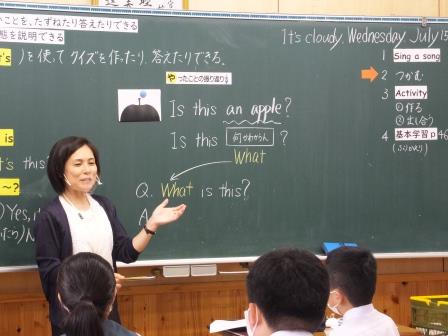 いことを、たずねたり答えたりできる
態を説明できる
)を使ってクイズを作ったり、答えたりできる。
やったことの振り返り
It's cloudy. Wednesday July 15
1 Sing a song
2 つかむ
3 Activity
① 作る
② 出し合う
4 基本学習 p46
(ふりかえり)
Is this an apple?
Is this 何かわからん ?
What
Q. What is this?
A
is
t's this?
~?
) Yes, i